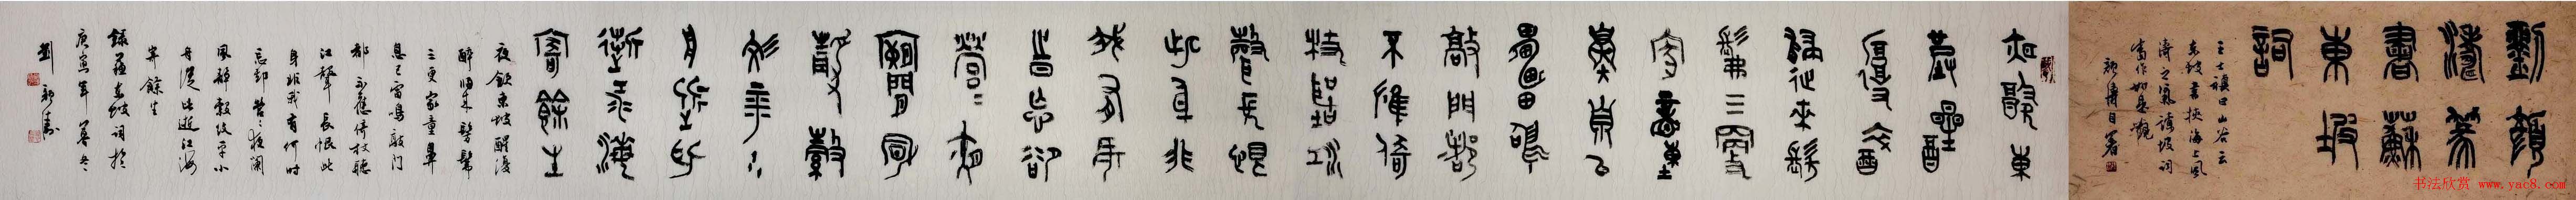 劉顏
濤篆
書蘇
東坡
詞
王士禎曰山谷云
東坡書挾海上風
濤之氣讀坡詞
當作如是觀
顏濤自署
夜歠東
坡醒
復醉
歸來髣
髴三更
家童
鼻息已
雷鳴
敲門都
不應倚
杖聽江
聲長恨
此身非
我有何
時忘卻
營〻夜
闌風
靜縠
紋平小
舟從此
逝江海
寄餘生
夜飲東坡醒復
醉歸來髣髴
三更家童鼻
息已雷鳴敲门
都不應倚杖聽
江聲長恨此
身非我有何時
忘卻營〻夜闌
風靜縠紋平小
舟從此逝江海
寄餘生
錄蘇東坡詞於
庚寅年
劉顏濤
书法欣赏 www.yac8.com